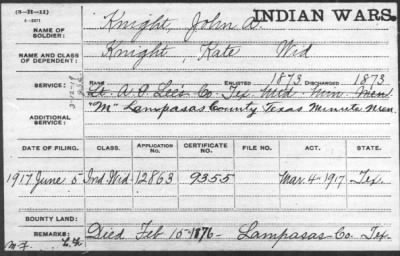 (3-31-11)
3-2071
INDIAN WARS.
NAME OF SOLDIER: Knight, John A.
NAME AND CLASS OF DEPENDENT: Knight, Kate Wid
SERVICE: RANK ENLISTED 1873 DISCHARGED 1873
Lt. A. P. Lee's Co. Tex. Mtd. Min. Men
ADDITIONAL SERVICE: "M" Lampasas County Texas Minute Men
DATE OF FILING. CLASS. APPLICATION NO. CERTIFICATE NO. FILE NO. ACT. STATE.
1917 June 5 Ind. Wid. 12863 9355 Mar. 4-1917 Tex.
BOUNTY LAND:
REMARKS: Died Feb 15-1876 - Lampasas Co. Tex.